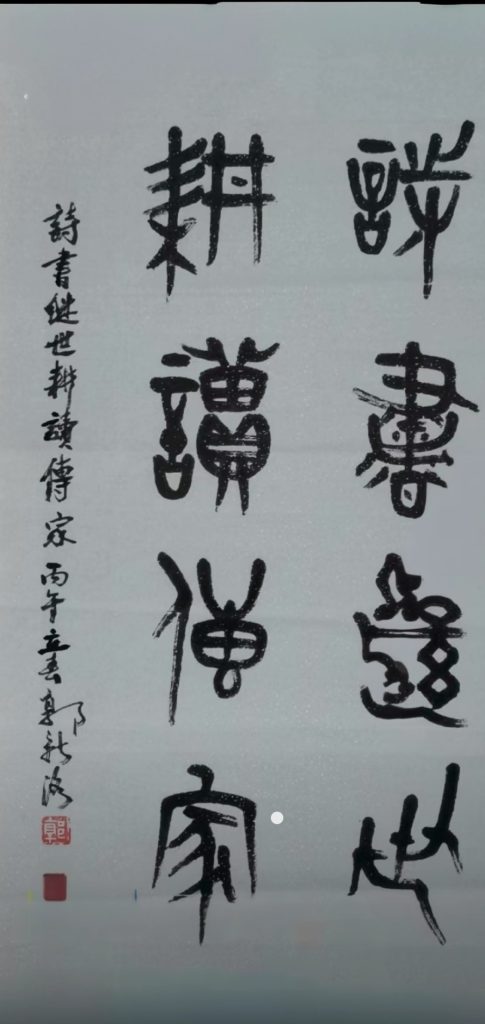 詩書繼世
耕讀傳家
詩書继世耕讀傳家丙午立春郭新洛
郭